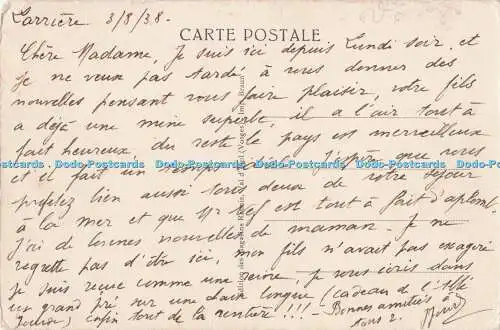 Larrière 3/8/38-
CARTE POSTALE
Chère Madame, Je suis ici depuis Lundi soir et
je ne veux pas tardé à vous donner des
nouvelles pensant vous faire plaisir, votre fils
a déjà une mine superbe, il a l'air tout à
fait heureux, du reste le pays est merveilleux
et il fait un temps J'espère que vous
profitez bien aussi tous deux de votre séjour
à la mer et que Mr est tout à fait d'aplomb
J'ai de bonnes nouvelles de maman. Je ne
regrette pas d'être ici, mon fils n'avait pas exagéré
je suis reçue comme une reine, je vous écris dans
un grand pré sur une chaise longue (cadeau de l'
) enfin tout de la rentière!!! - Bonnes amitiés à
tous 2.
Dodo-Postcards Dodo-Postcards Dodo-Postcards Dodo-Postcards Dodo-Postcards Dodo-Postcards